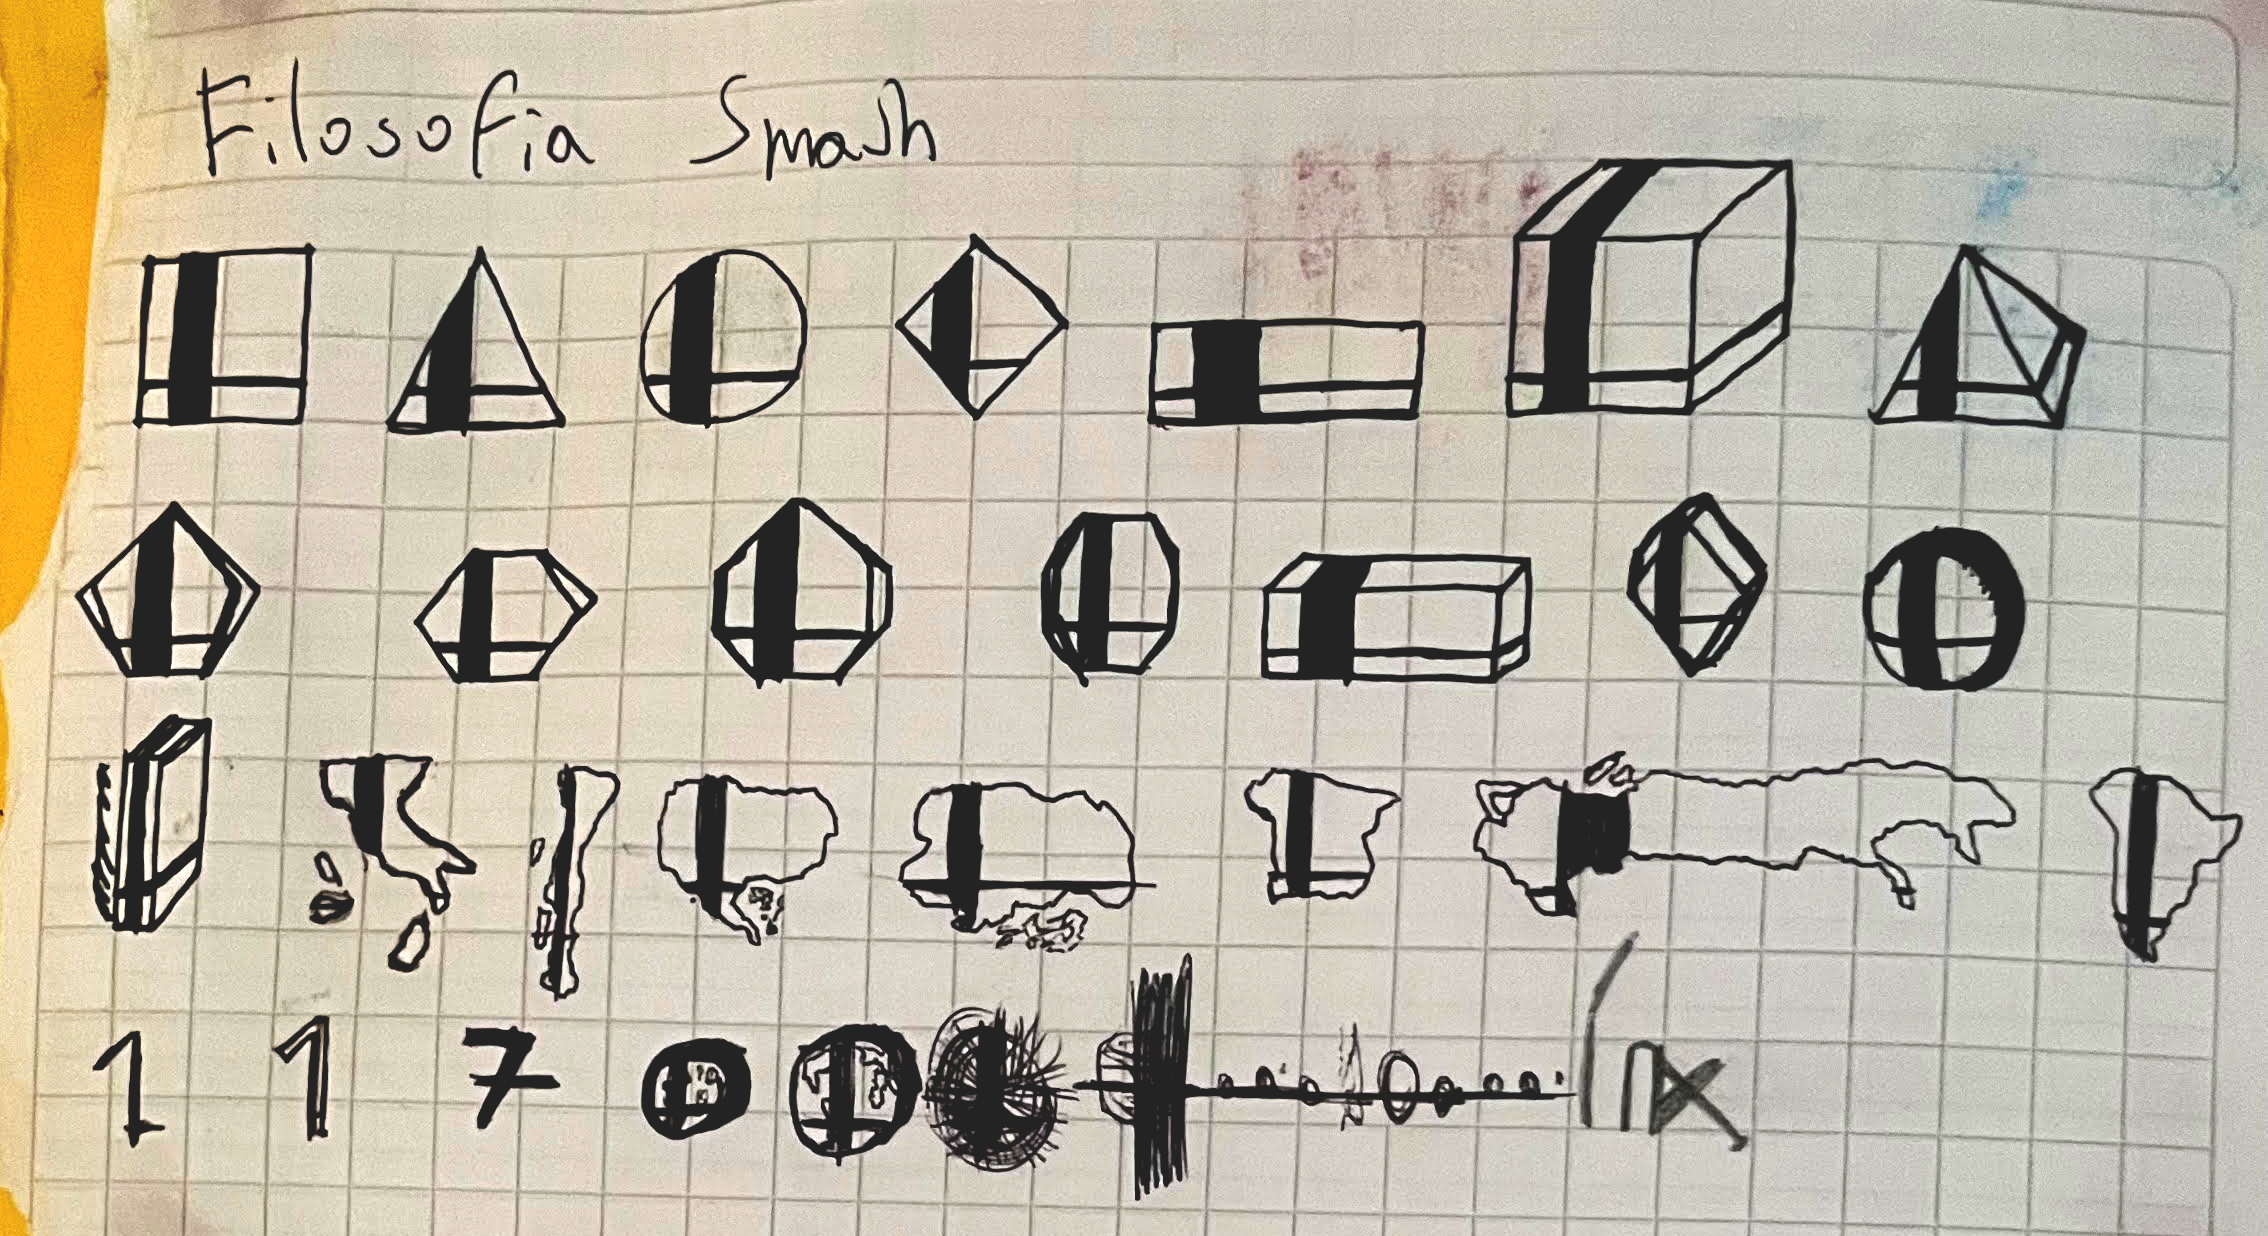 Filosofia Smash
1 1 7